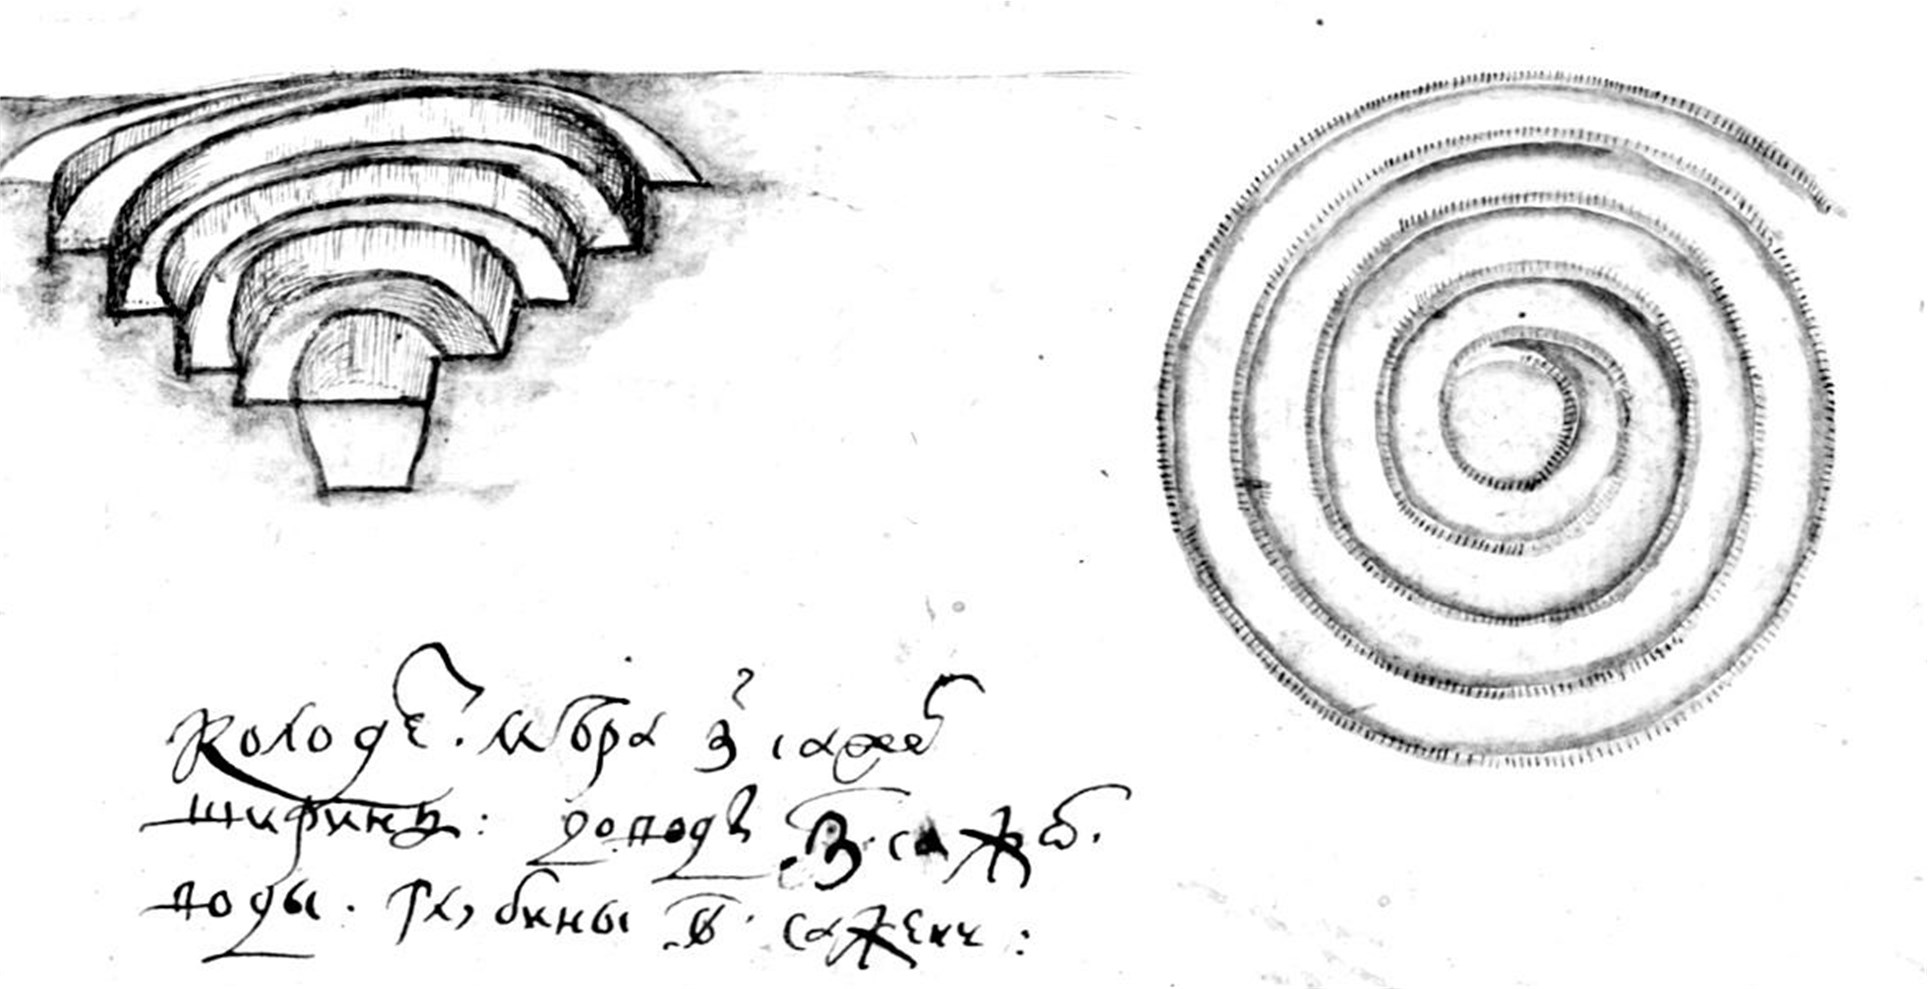 колодеⷥ. мѣра з҃ сажеⷩ
ширины: доводꙋ з҃ саже.
воды. глꙋбины в҃. сажени: